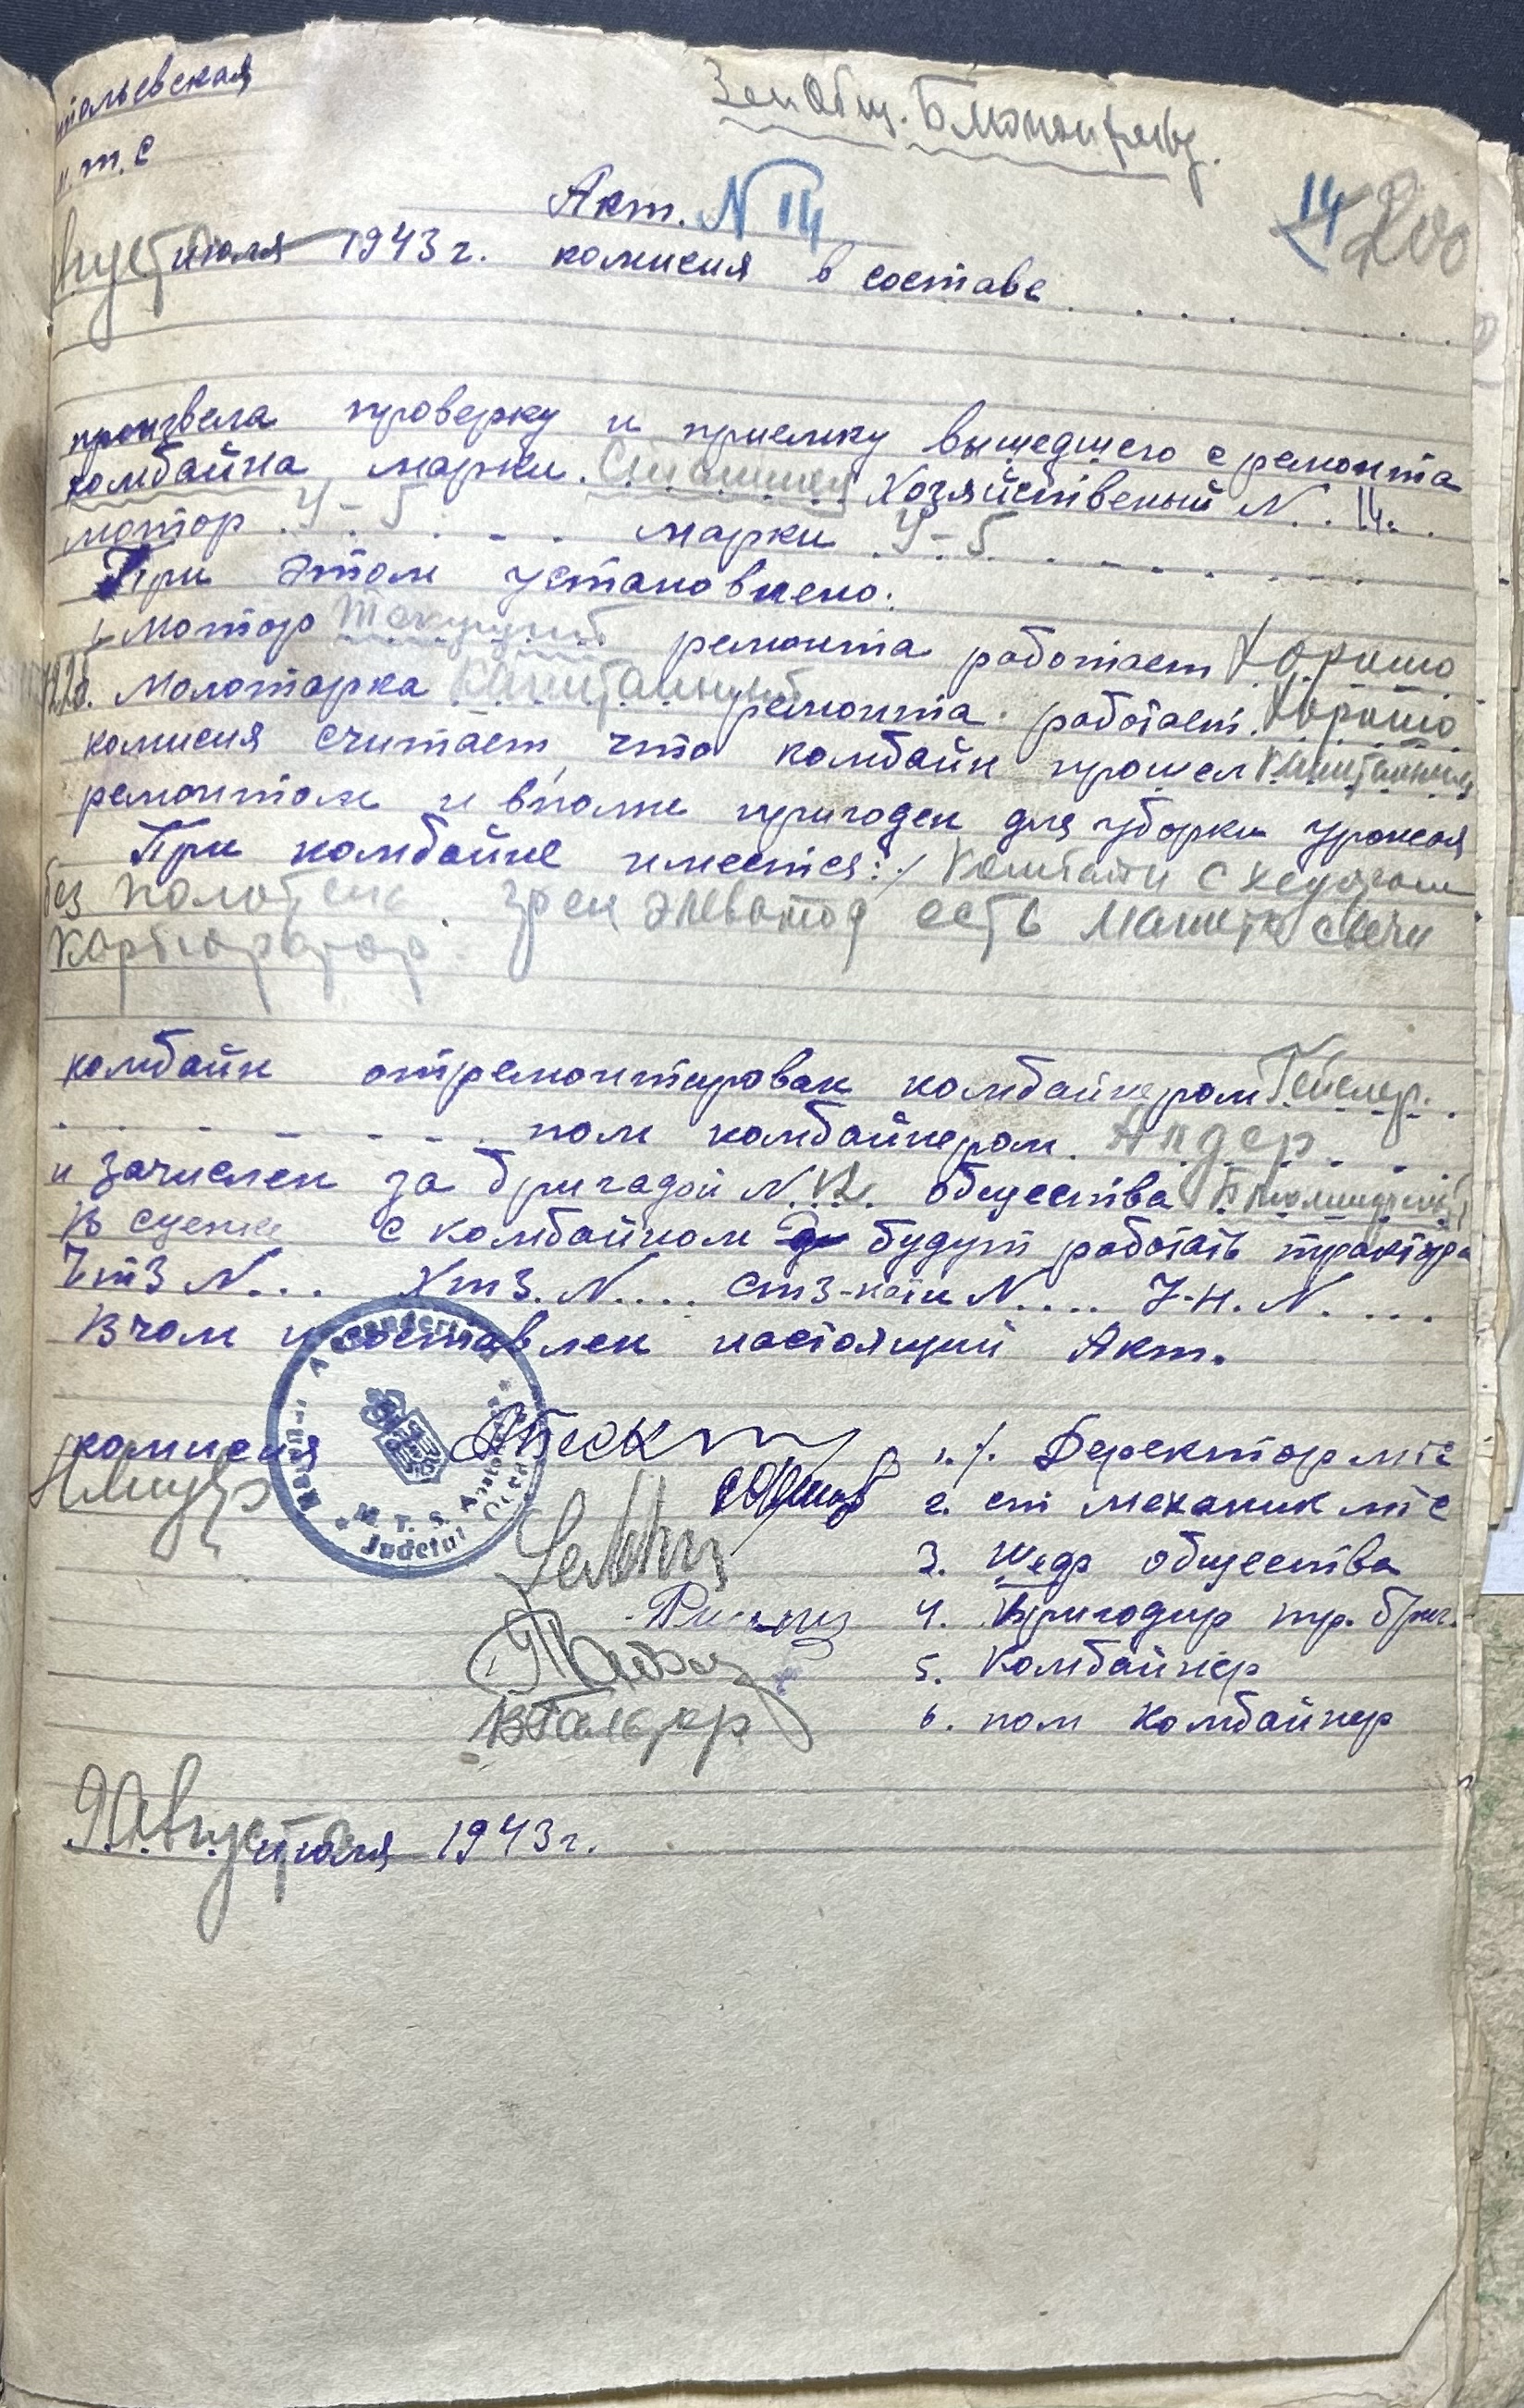 тольевская
м.т.с
ЗемОбщ.
Акт. N 14
14 200
Август июля 1943 г. комисия в составе
произвела проверку и приемку вышедшего с ремонта
комбайна марки. Хозяйственый N. . 14.
мотор У-5 марки У-5
При этом установлено:
Мотор Текущий ремонта работает Хорошо
2. Молотарка Капитальный ремонта. работает. Хорошо
комисия считает, что комбайн прошел
ремонтом и вполне пригоден для уборки урожая
При комбайне имеется: с хедером
без полотена. зрен элеватор есть Магнето свечи
карбюратор.
комбайн отремонтирован комбайнером Гейслер.
пом комбайнером.
и зачислен за бригадой N. 12. общества
В сцепке с комбайном будут работать трактора
ЧТЗ N... ХтЗ. N.... СтЗ-нати N.... У-н. N. ...
В чом и составлен настоящий Акт.
M.T.S.
Judetul
комисия 1./. Деректор мтс
2. ст механик мтс
3. шеф общества
4. Бригодир тр. бриг.
5. Комбайнер
6. пом комбайнер
9 Августа июля 1943 г.